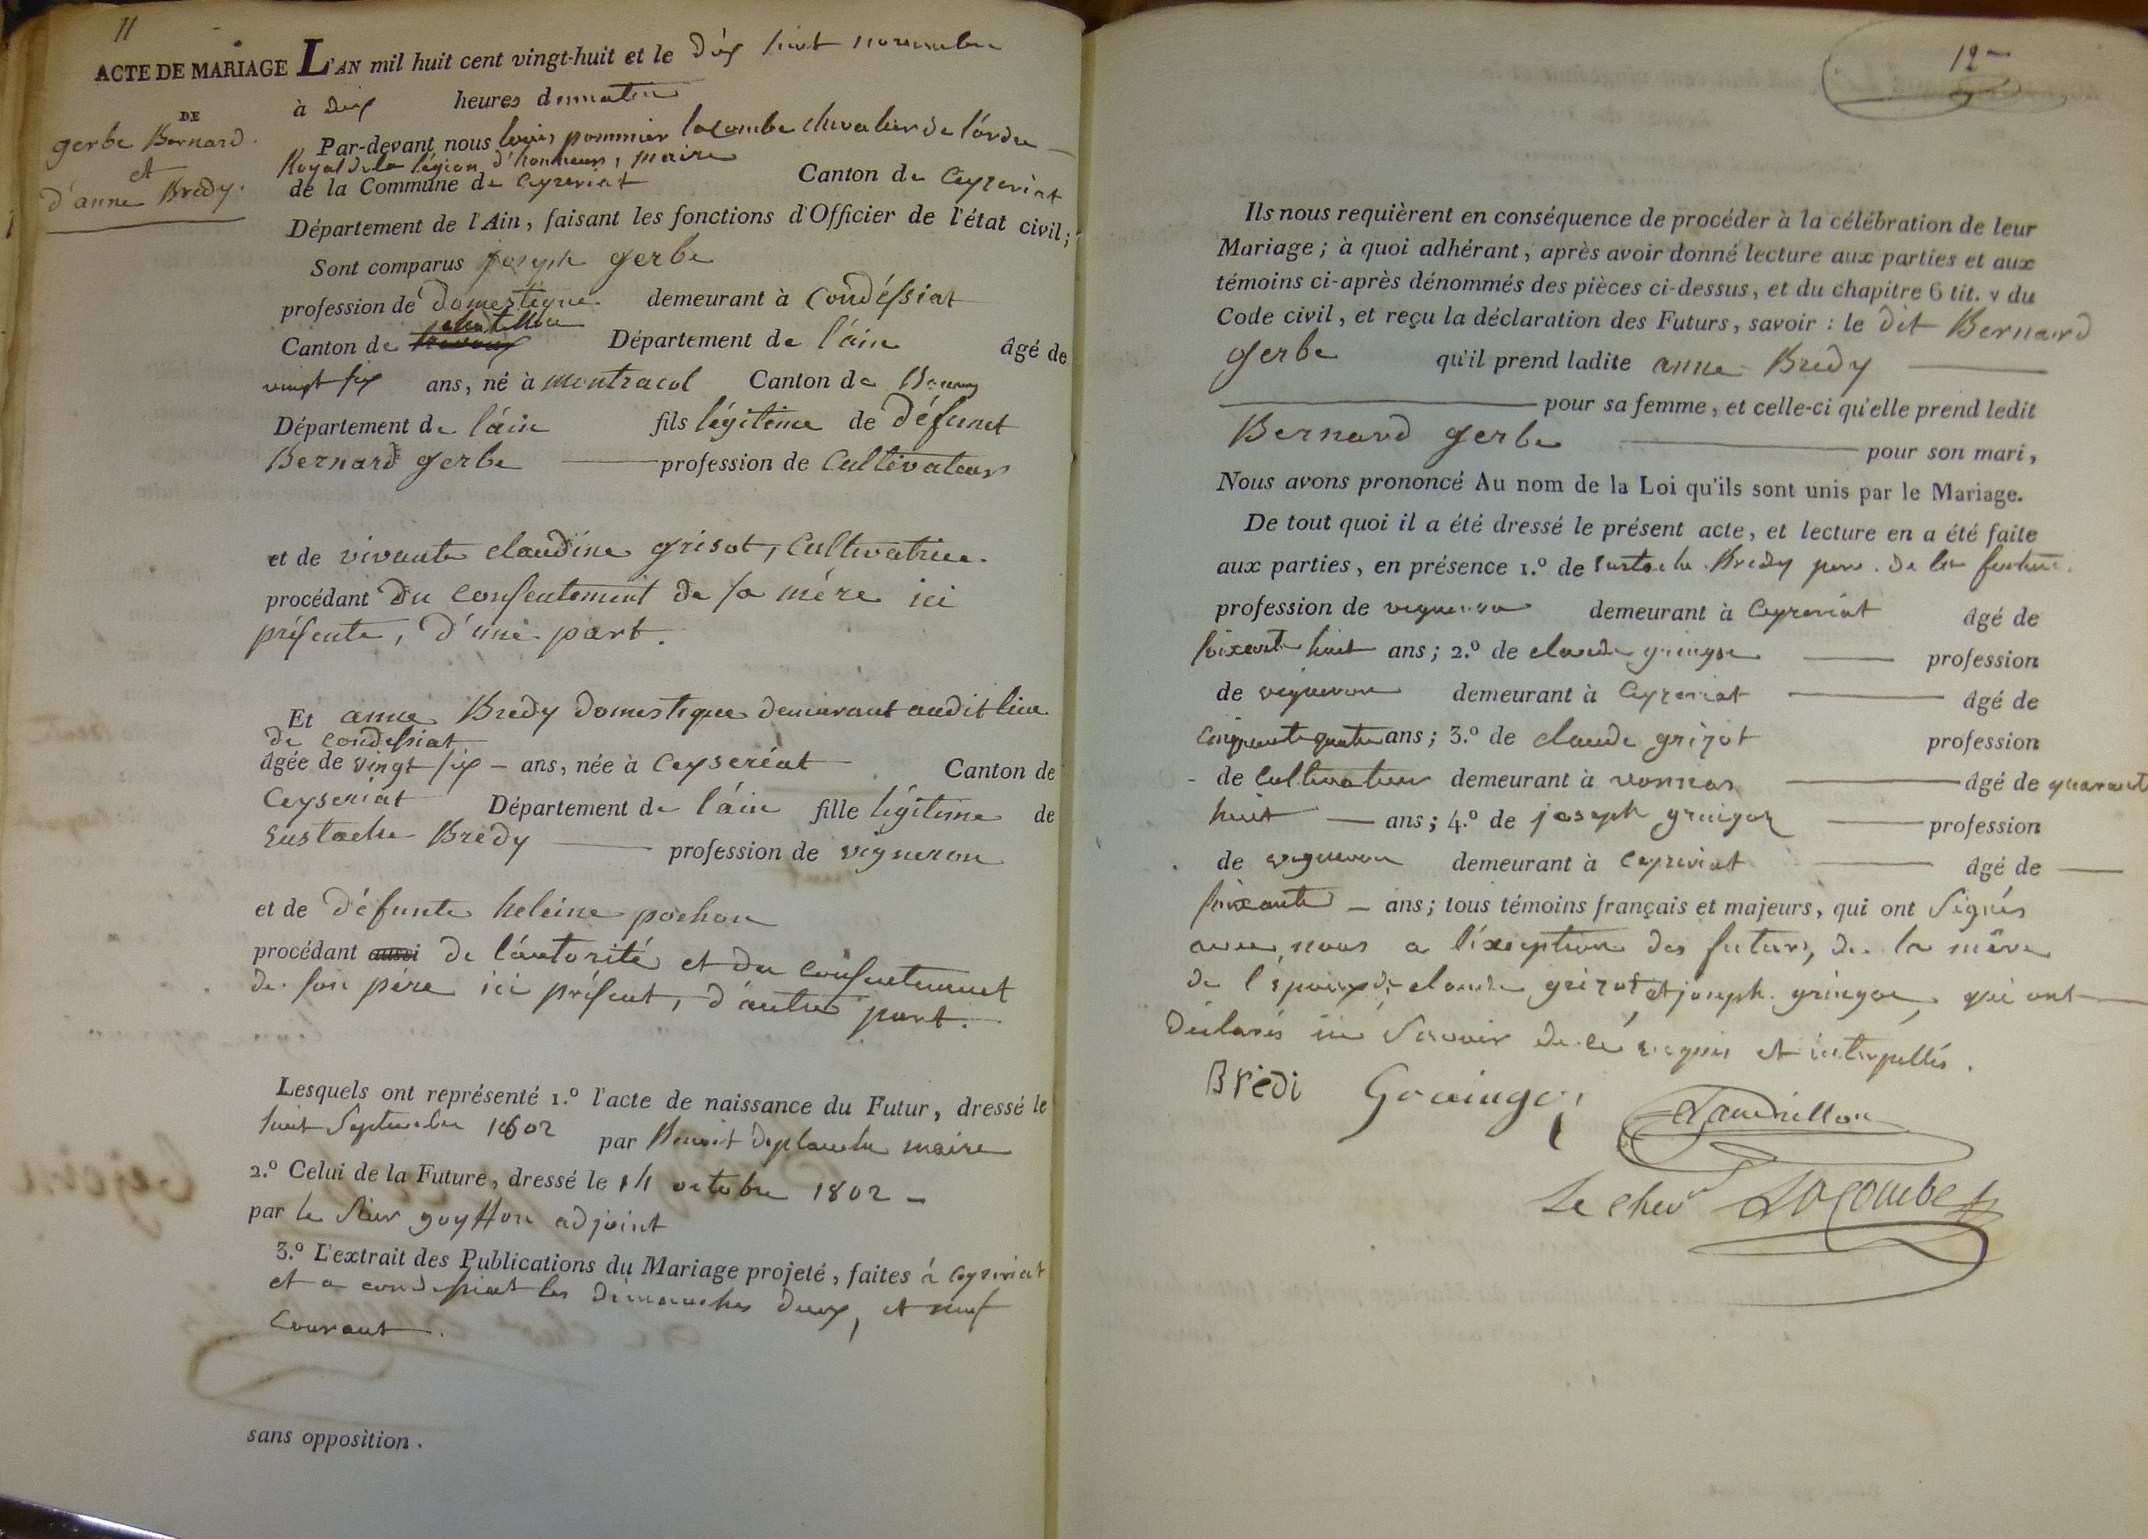 11
ACTE DE MARIAGE L'AN mil huit cent vingt-huit et le dix huit novembre
à dix heures du matin
DE
gerbe Bernard.
et
d'anne Bredy.
Par-devant nous louis pommier lacombe chevalier de l'ordre
Royal de la légion d'honneur, maire
de la Commune de Ceyzeriat Canton de Ceyzeriat
Département de l'Ain, faisant les fonctions d'Officier de l'état civil;
Sont comparus joseph gerbe
profession de domestique. demeurant à Condéssiat
chatillon
Canton de Département de l'áin âgé de
vingt six ans, né à montracol Canton de Bourg
Département de l'áin fils légitime de défunct
Bernard gerbe profession de Cultivateur
et de vivante claudine grisot, Cultivatrice.
procédant du consentement de sa mére ici
présente, d'une part.
Et anne Bredy domestique demeurant audit lieu
de condessiat
âgée de vingt six - ans, née à Ceyseréat Canton de
Ceyseriat Département de l'áin fille légitime de
Eustache Bredy profession de vigneron
et de défunte heleine pochon
procédant aussi de l'áutorité et du consentement
de son pére ici présent, d'autre part.
Lesquels ont représenté 1.º l'acte de naissance du Futur, dressé le
huit Septembre 1802 par Benoit deplanche maire
2.º Celui de la Future, dressé le 14 octobre 1802 -
par le Sieur goyffon adjoint
3.º L'extrait des Publications du Mariage projeté, faites à Ceyzeriat
et a condessiat les dimanches deux, et neuf
Courant.
sans opposition.
12
Ils nous requièrent en conséquence de procéder à la célébration de leur
Mariage; à quoi adhérant, après avoir donné lecture aux parties et aux
témoins ci-après dénommés des pièces ci-dessus, et du chapitre 6 tit. v du
Code civil, et reçu la déclaration des Futurs, savoir: le dit Bernard
gerbe qu'il prend ladite anne Bredy
pour sa femme, et celle-ci qu'elle prend ledit
Bernard gerbe pour son mari,
Nous avons prononcé Au nom de la Loi qu'ils sont unis par le Mariage.
De tout quoi il a été dressé le présent acte, et lecture en a été faite
aux parties, en présence 1.º de Eustache Bredy pere de la future.
profession de vigneron demeurant à Ceyzeriat âgé de
soixante huit ans; 2.º de claude gringoz profession
de vigneron demeurant à Ceyzeriat âgé de
cinquante quatre ans; 3.º de claude grizot profession
de Cultivateur demeurant à vonnas âgé de quarante
huit ans; 4.º de joseph gringoz profession
de vigneron demeurant à Ceyzeriat âgé de
soixante - ans; tous témoins français et majeurs, qui ont Signés
avec nous a l'éxception des futurs, de la mére
de l'epoux, de claude grizot et joseph gringoz, qui ont
déclarés ne Savoir de ce requis et interpellés.
Bredi Graingoz
Le chev Lacombe